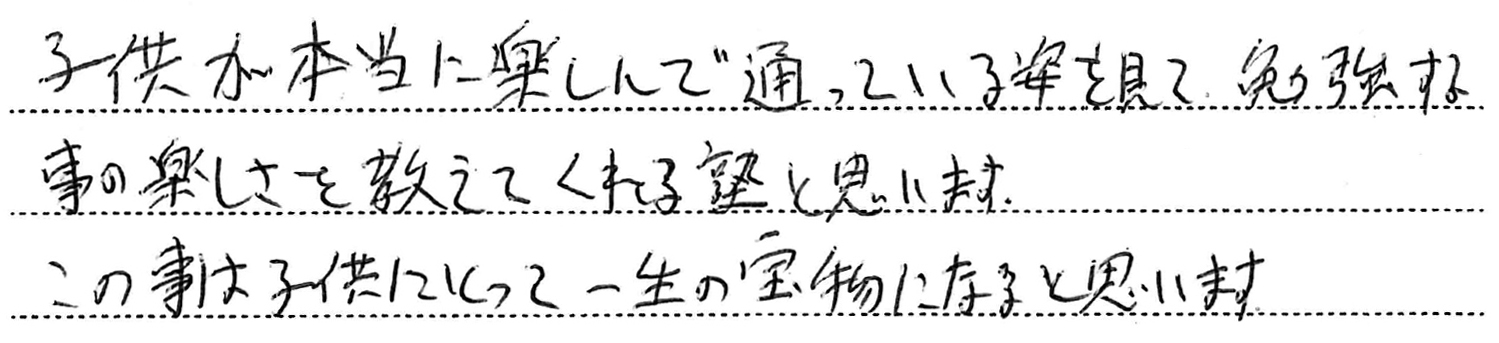 子供が本当に楽しんで通っている姿を見て、勉強する
事の楽しさを教えてくれる塾と思います。
この事は子供にとって一生の宝物になると思います